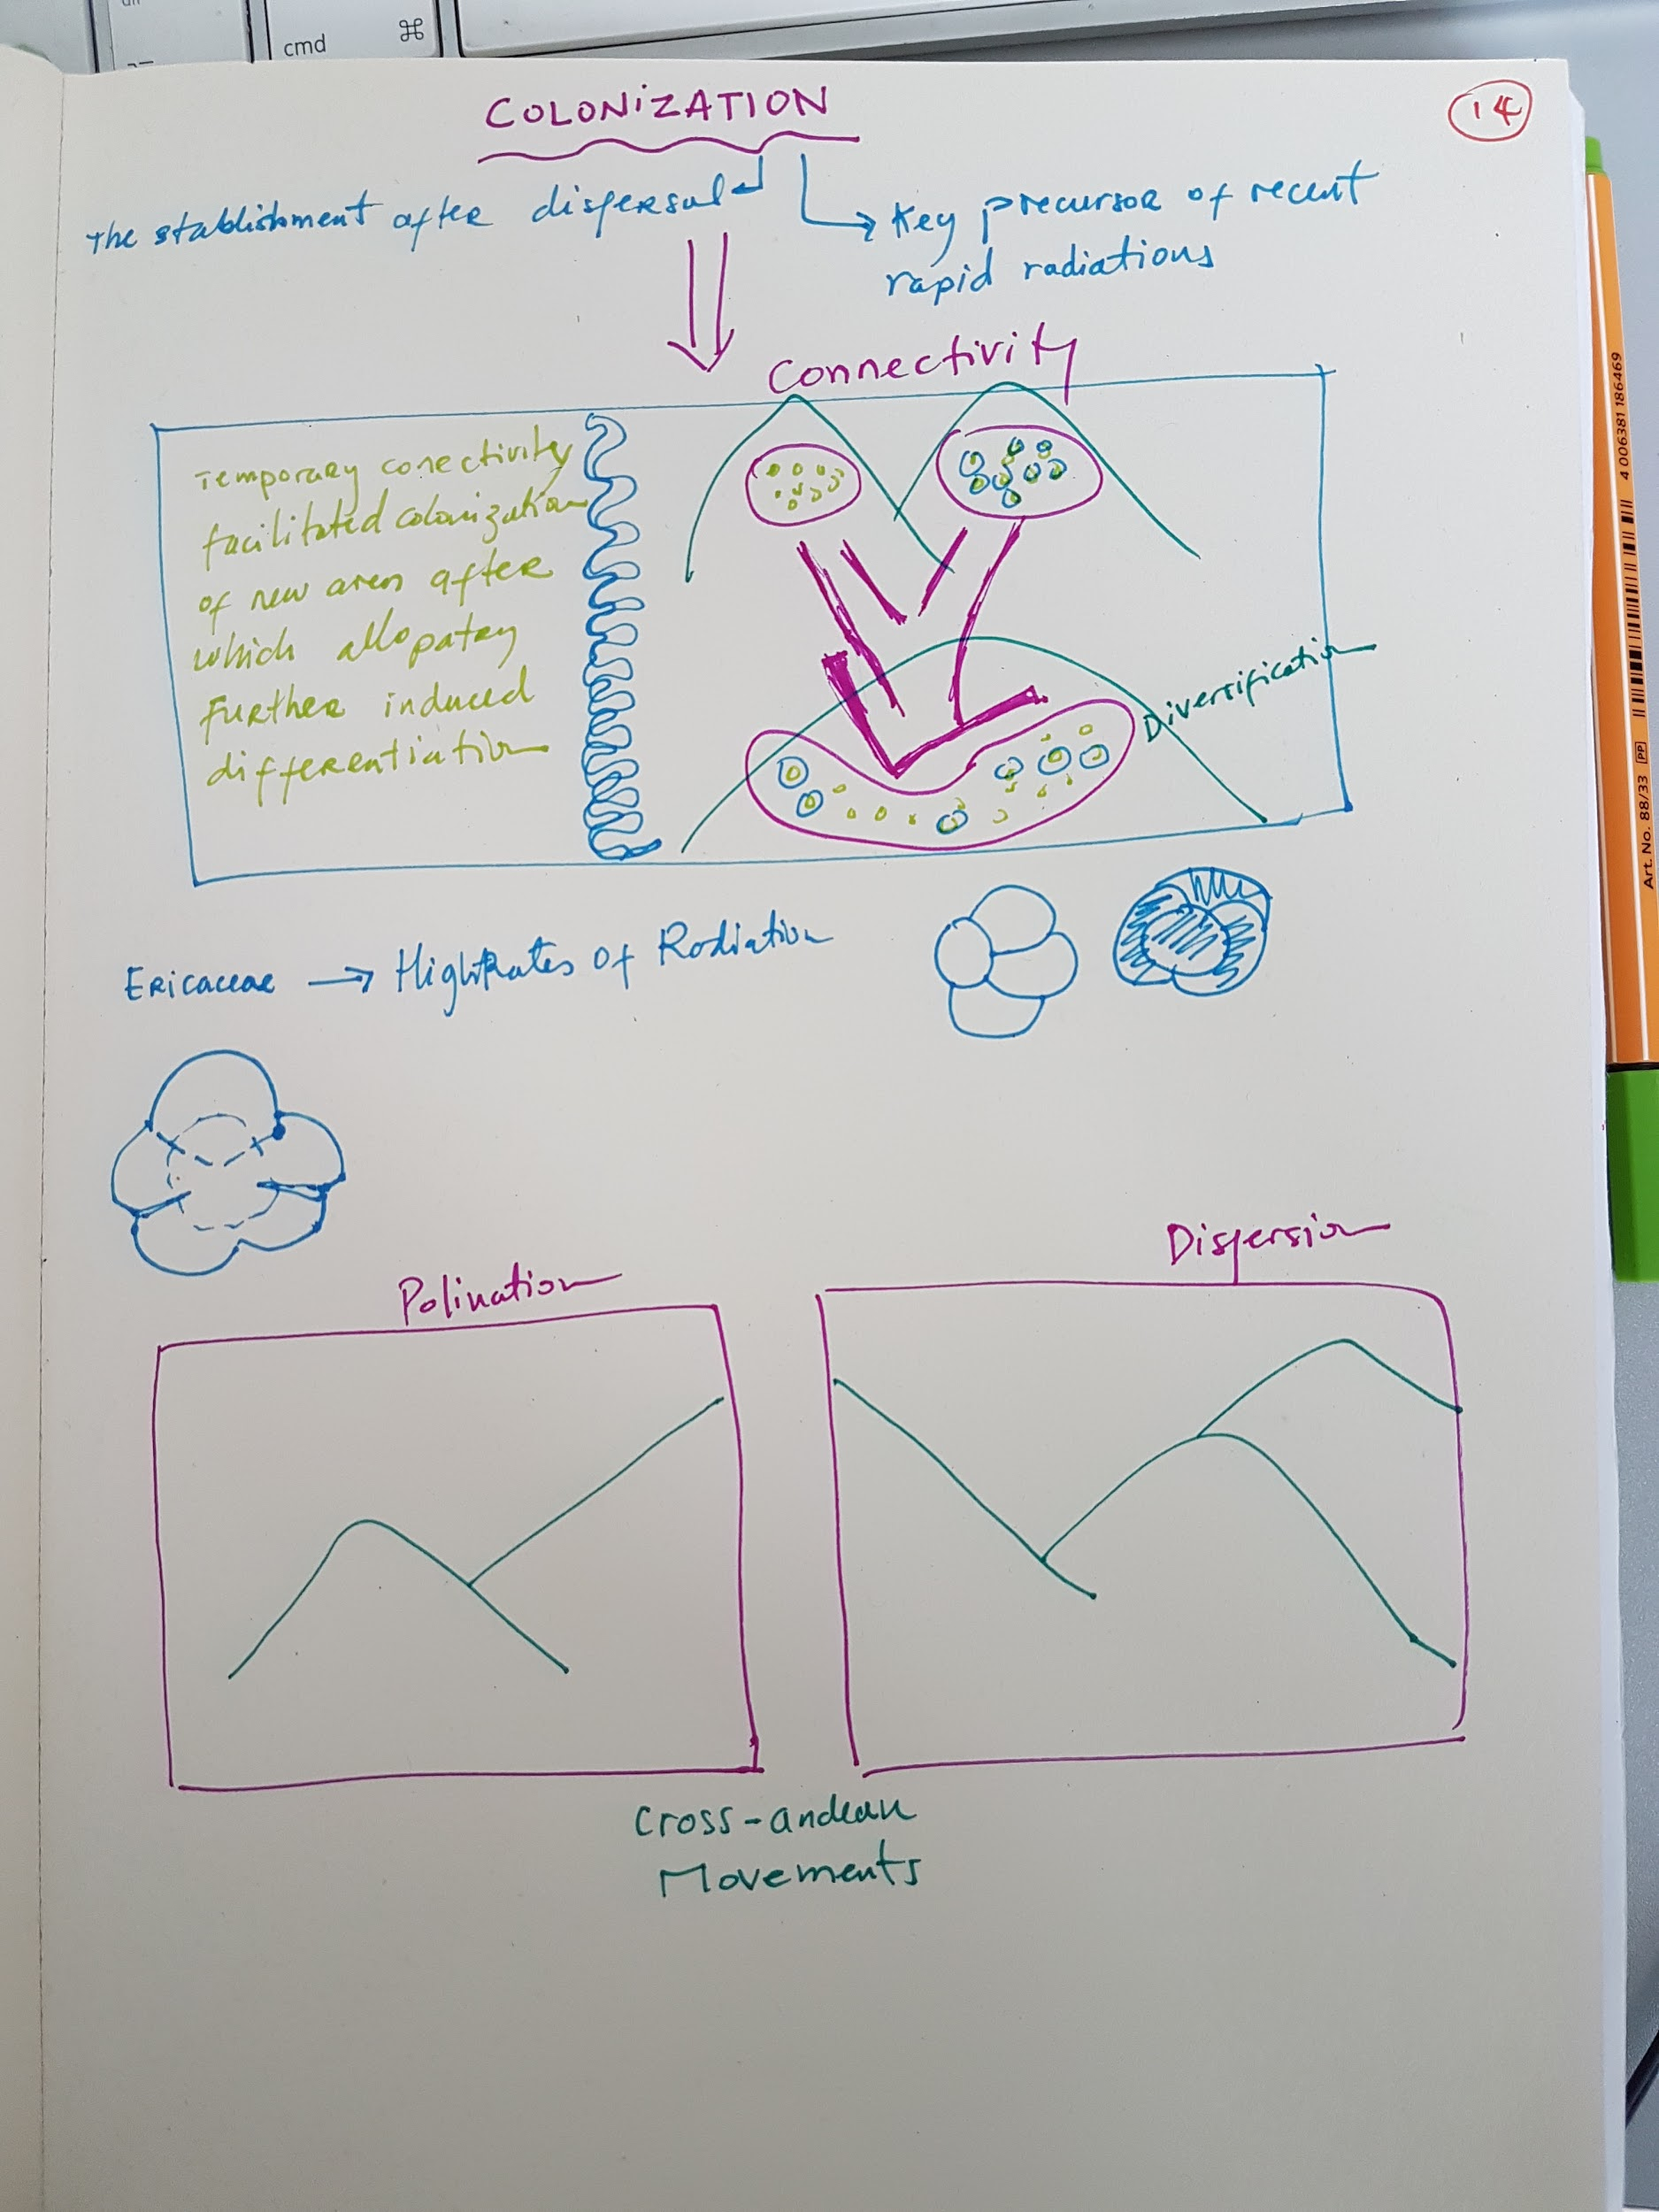 cmd ⌘
COLONiZATION
14
The stablishment after dispersal
Key precursor of recent
rapid radiations
Connectivity
Temporary conectivity
facilitated colonization
of new area after
which allopatry
Further induced
differentiation
Diversification
Ericaceae → High Rates Of Radiation
Polination
Dispersion
Cross-andean
Movements
Art. No. 88/33 PP 4 006381 186469